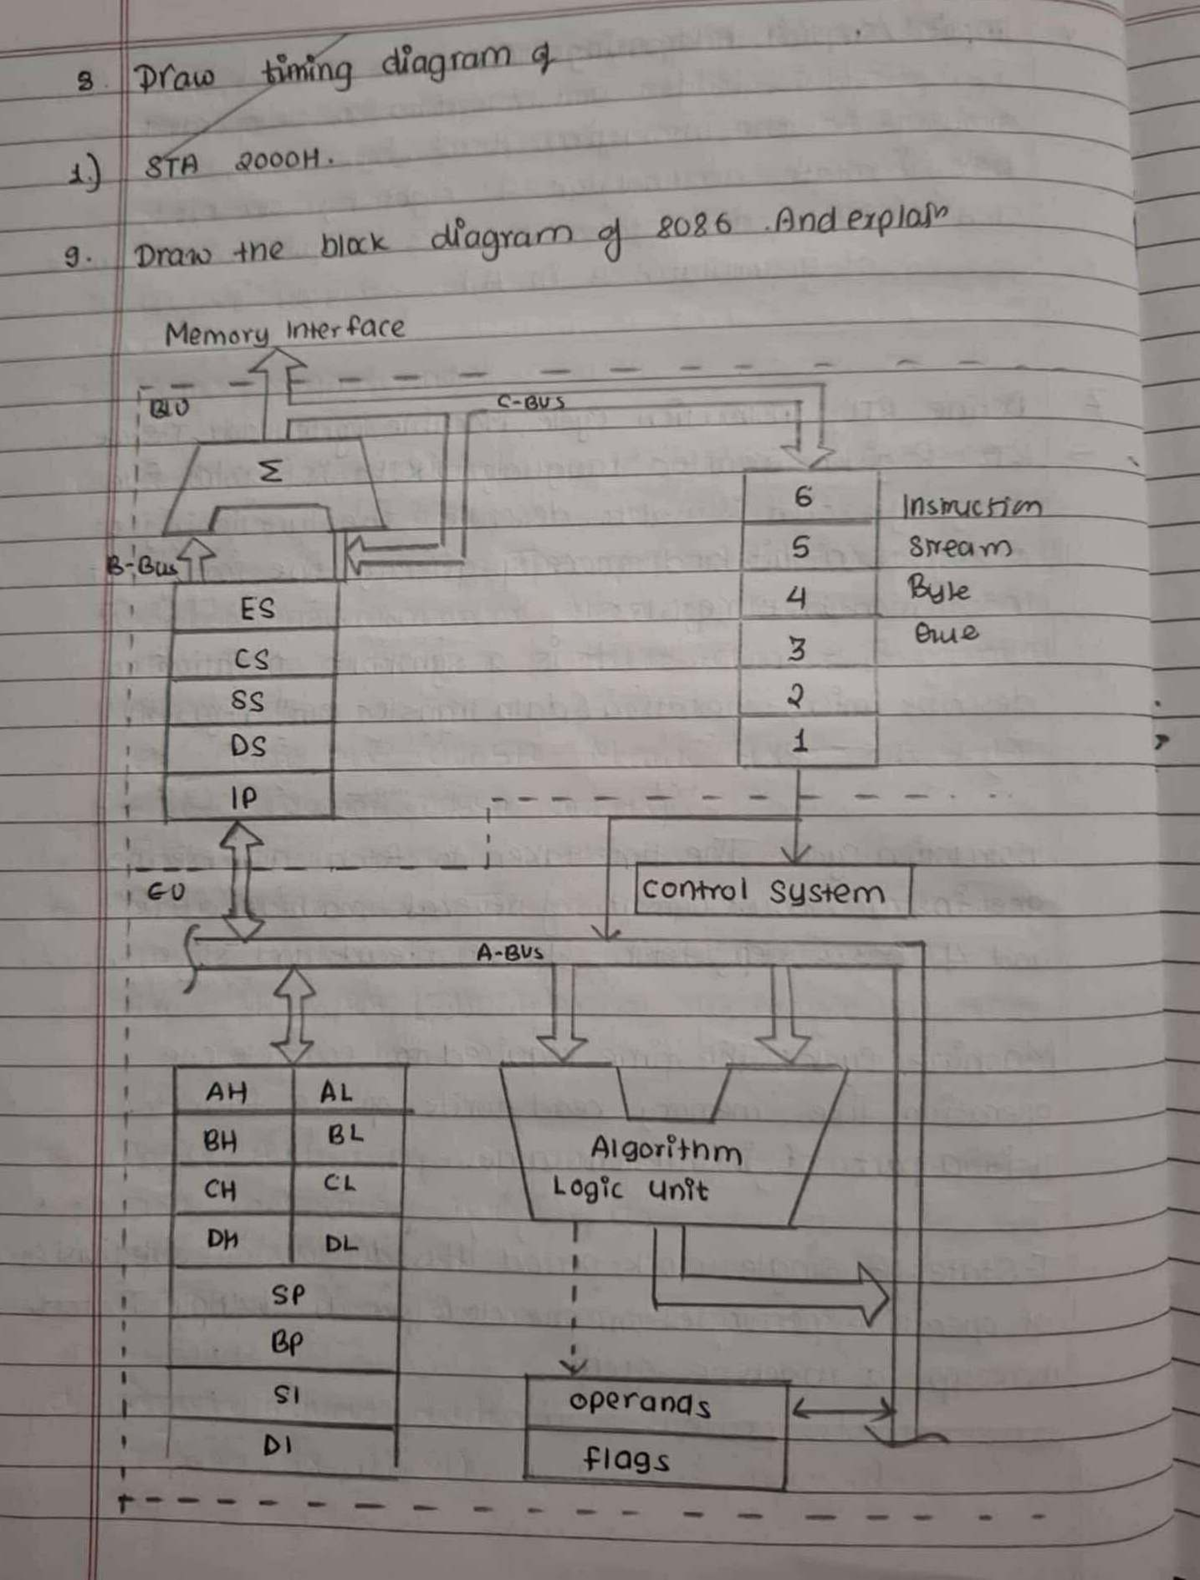 8. Draw timing diagram of
1.) STA 2000H.
9. Draw the block diagram of 8086 .And explain
Memory Interface
BIU
C-BUS
Σ
B-Bus
ES
CS
SS
DS
IP
6
5
4
3
2
1
Instruction
Stream
Byte
Que
EU
control system
A-BUS
AH AL
BH BL
CH CL
DH DL
SP
BP
SI
DI
Algorithm
Logic unit
operands
flags